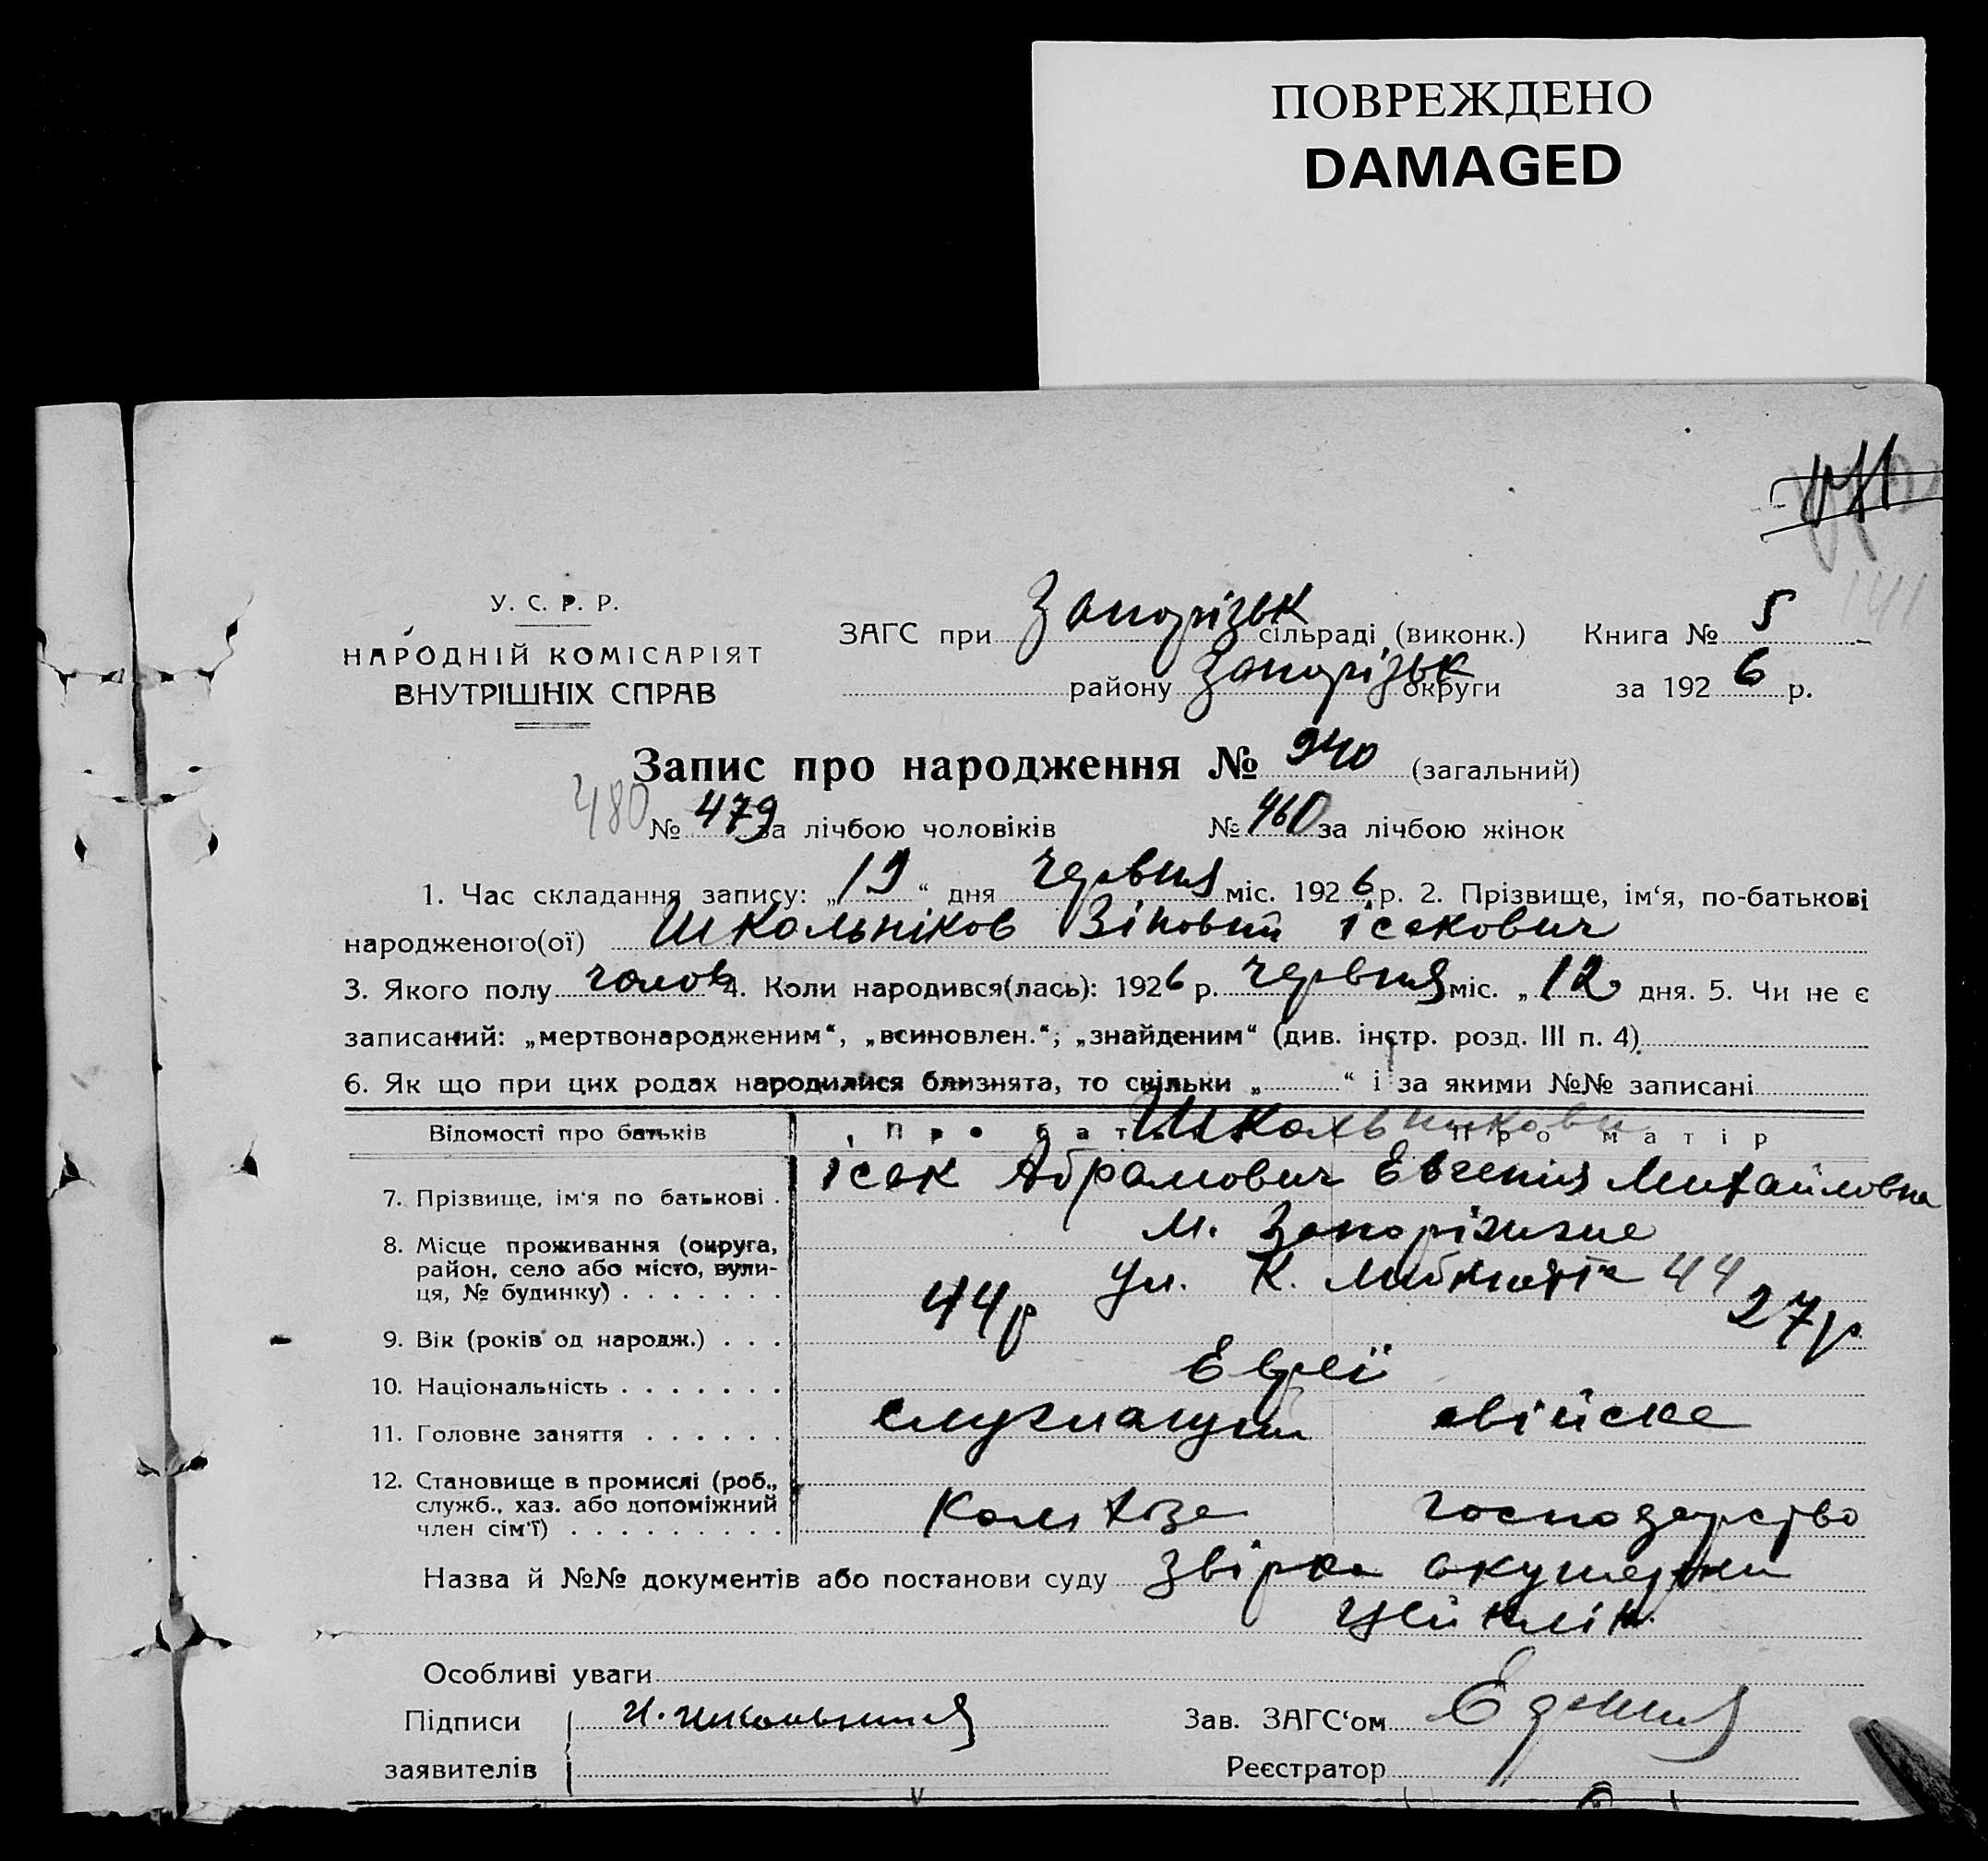 ПОВРЕЖДЕНО
DAMAGED
141
У. С. Р. Р.
НАРОДНІЙ КОМІСАРІЯТ
ВНУТРІШНІХ СПРАВ
ЗАГС при Запорізьк сільраді (виконк.) Книга № 5
району Запорізьк округи за 1926 р.
Запис про народження № 940 (загальний)
480 № 479 за лічбою чоловіків № 460 за лічбою жінок
1. Час складання запису: „19“ дня червня міс. 1926 р. 2. Прізвище, ім‘я, по-батькові
народженого(ої) Школьніков Зіновий Ісакович
3. Якого полу чолов 4. Коли народився(лась): 1926 р. червня міс. „12 дня. 5. Чи не є
записаний: „мертвонародженим“, „всиновлен.“; „знайденим“ (див. інстр. розд. III п. 4)
6. Як що при цих родах народилися близнята, то скільки „ “ і за якими №№ записані
Відомості про батьків Про батька Про матір
Школьникови
7. Прізвище, ім‘я по батькові . Ісак Абрамович Евгенія Михайловна
8. Місце проживання (округа, район, село або місто, вулиця, № будинку) . . . . . . . м. Запоріжжє
Ул. К. Либкнехта 44
9. Вік (років од народж.) . . . 44р 27р
10. Національність . . . . . . . Евреї
11. Головне заняття . . . . . . служащий
12. Становище в промислі (роб., служб., хаз. або допоміжний член сім‘ї) . . . . . . . . . господарство
Назва й №№ документів або постанови суду акушерки
Особливі уваги
Підписи И. Школьников
заявителів
Зав. ЗАГС‘ом
Реєстратор